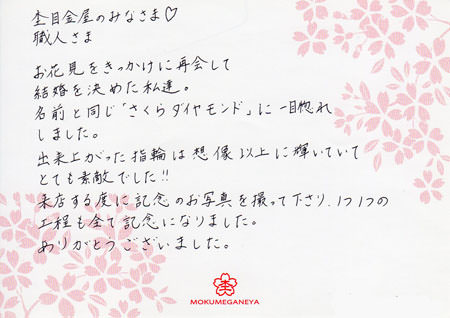 杢目金屋のみなさま♡
職人さま
お花見をきっかけに再会して
結婚を決めた私達。
名前と同じ「さくらダイヤモンド」に一目惚れ
しました。
出来上がった指輪は想像以上に輝いていて
とても素敵でした!!
来店する度に記念のお写真を撮って下さり、1つ1つの
工程も全て記念になりました。
ありがとうございました。
杢
MOKUMEGANEYA